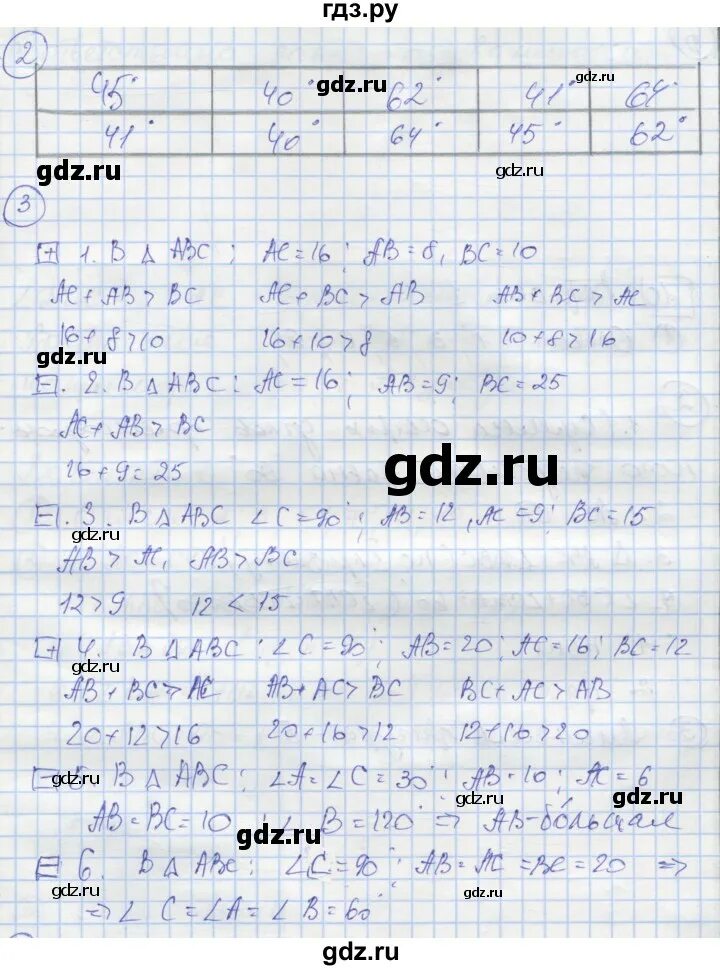 гдз.ру
2
45° 40° 62° 41° 64°
gdz.ru
41° 40° 64° 45° 62°
gdz.ru gdz.ru
3
+ 1. В Δ ABC; AC=16; AB=8, BC=10
AC+AB>BC AC+BC>AB AB+BC>AC
16+8>10 16+10>8 10+8>16
gdz.ru
–. 2. В Δ ABC: AC=16; AB=9; BC=25
AC+AB>BC
gdz.ru
16+9=25
–. 3. В Δ ABC ∠C=90°; AB=12, AC=9; BC=15
gdz.ru
AB>AC, AB>BC
12>9 12<15
+ 4. В Δ ABC: ∠C=90°; AB=20; AC=16; BC=12
gdz.ru
AB+BC>AC AB+AC>BC BC+AC>AB
20+12>16 20+16>12 12+16>20
– 5. В Δ ABC: ∠A=∠C=30°; AB=10; AC=6
gdz.ru gdz.ru
AB=BC=10; ∠B=120° => AB-большая
gdz.ru
– 6. В Δ ABC: ∠C=90°; AB=AC=BC=20 =>
=> ∠C=∠A=∠B=60°
gdz.ru